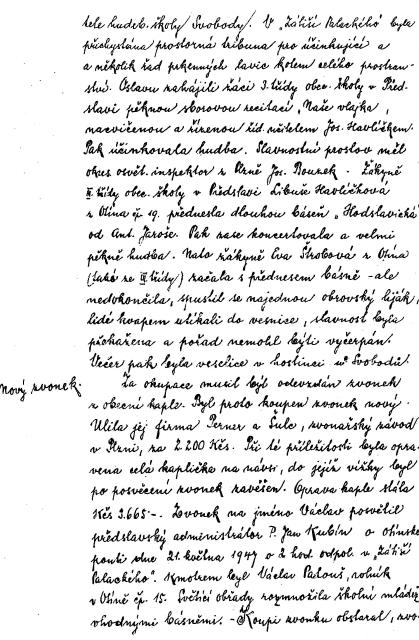 tele hudeb. školy Svobody. V „Zátiší Palackého" byla
přichystána prostorná tribuna pro účinkující a
a několik řad prkenných lavic kolem celého prostran-
ství. Oslavu zahájili žáci 3. třídy obec. školy v Před-
slavi pěknou sborovou recitací „Naše vlajka,
nacvičenou a řízenou říd. učitelem Jos. Havlíčkem.
Pak účinkovala hudba. Slavnostní proslov měl
okres. osvět. inspektor z Plzně Jos. Bouzek. Žákyně
II. třídy obec. školy v Předslavi Libuše Havlíčková
z Otína čp. 19. přednesla dlouhou báseň „Hodslavická"
od Ant. Jaroše. Pak zase koncertovala a velmi
pěkně hudba. Nato žákyně Eva Štrobová z Otína
(také ze III. třídy) začala s přednesem básně - ale
nedokončila, spustil se najednou obrovský liják,
lidé kvapem utíkali do vesnice, slavnost byla
překažena a pořad nemohl býti vyčerpán.
Večer pak byla veselice v hostinci u Svobodů.
Nový zvonek. Za okupace musil být odevzdán zvonek
z obecní kaple. Byl proto koupen zvonek nový.
Ulila jej firma Perner a Šulc, zvonařský závod
v Plzni, za 2.200 Kčs. Při té příležitosti byla opra-
vena celá kaplička na návsi, do jejíž vížky byl
po posvěcení zvonek zavěšen. Oprava kaple stála
Kčs 3.665.-. Zvonek na jméno Václav posvětil
předslavský administrátor P. Jan Kubín o otínské
pouti dne 21. května 1947 o 2 hod. odpol. v „Zátiší
Palackého". Kmotrem byl Václav rolník
v Otíně čp. 15. Světící obřady rozmnožila školní mládež
vhodnými básněmi. - Koupi zvonku obstaral, zvo-